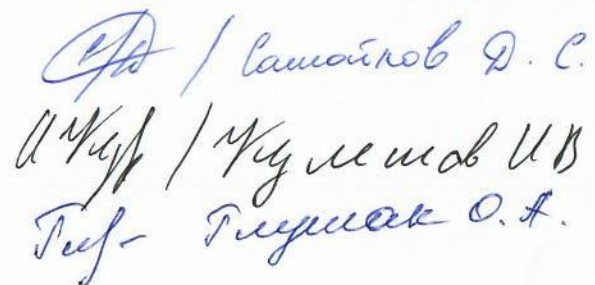 / Самойлов Д. С.
/ Кулешов И В
Глушак О. А.